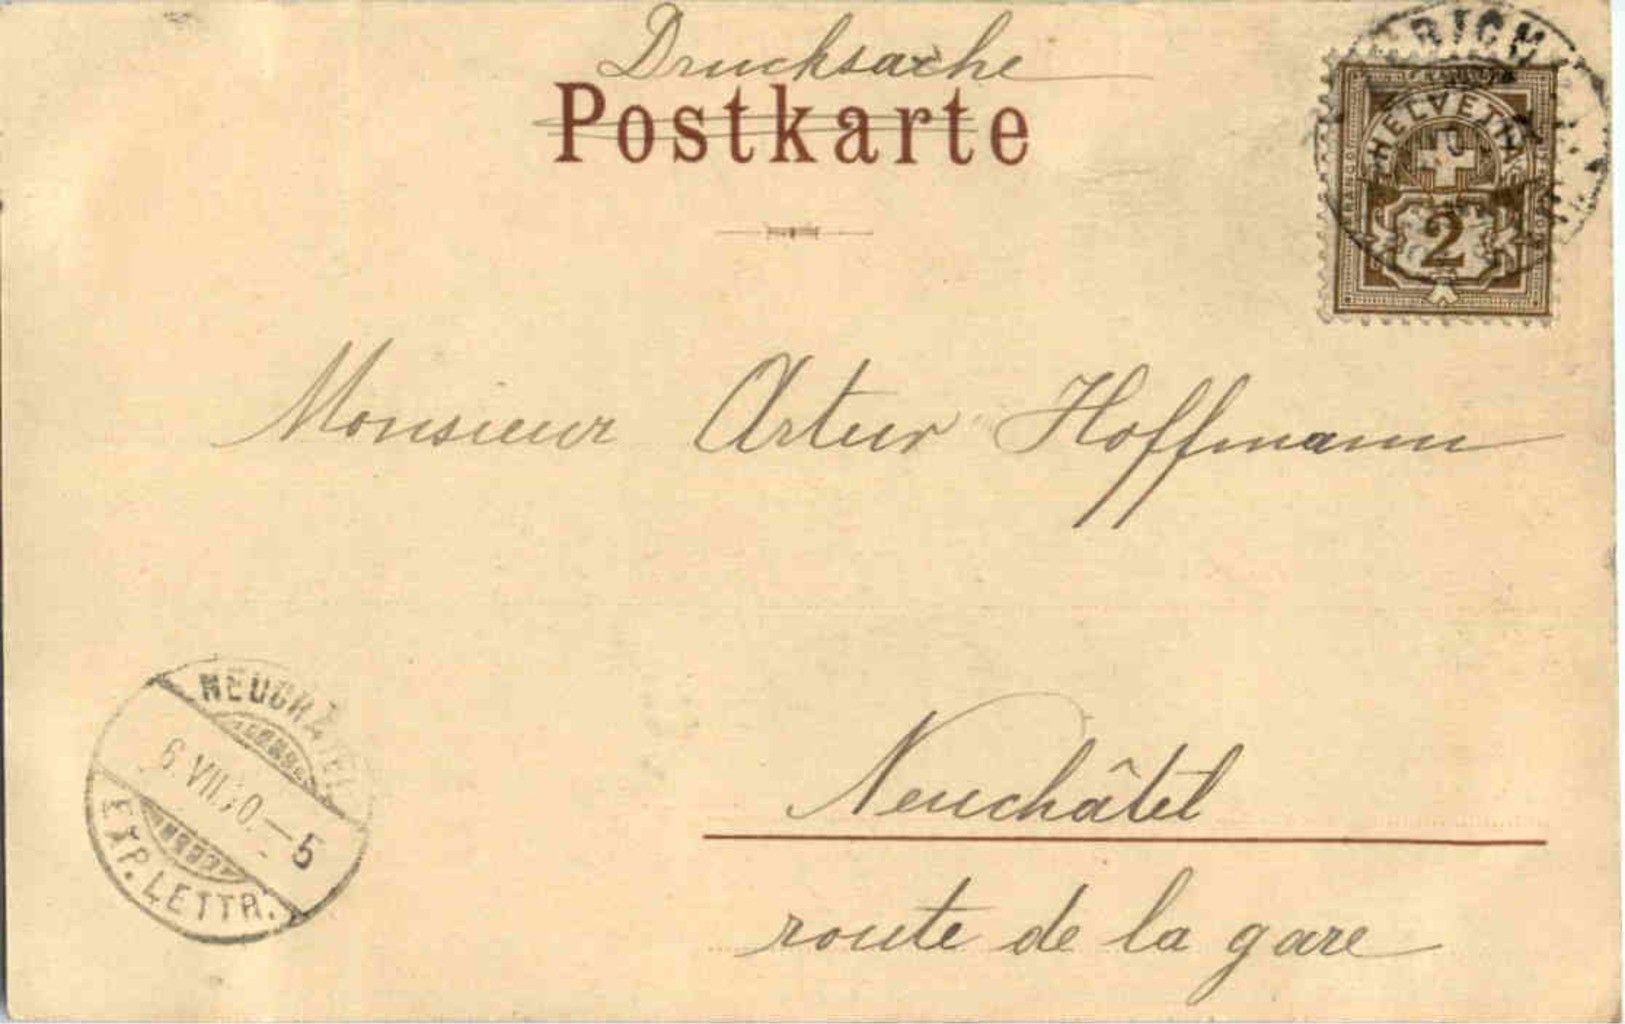 Drucksache
Postkarte
HELVETIA
2
Monsieur Artur Hoffmann
NEUCHATEL
6.VII.00.—5
EXP. LETTR.
Neuchâtel
route de la gare